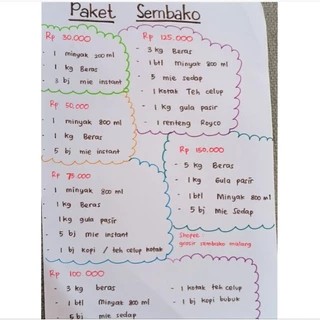 Paket Sembako
Rp 30.000
- 1 minyak 200 ml
- 1 kg Beras
- 3 bj mie instant
Rp 50.000
- 1 minyak 800 ml
- 1 kg Beras
- 5 bj mie instant
Rp 75.000
- 1 minyak 800 ml
- 1 kg Beras
- 1 kg gula pasir
- 5 bj mie instant
- 1 bj kopi / teh celup kotak
Rp 100.000
- 3 kg beras
- 1 btl Minyak 800 ml
- 5 bj mie sedap
- 1 kotak teh celup
- 1 bj kopi bubuk
Rp 125.000
- 3 kg Beras
- 1 btl Minyak 800 ml
- 5 mie sedap
- 1 kotak Teh celup
- 1 kg gula pasir
- 1 renteng Royco
Rp 150.000
- 5 kg Beras
- 1 kg Gula pasir
- 1 btl Minyak 800 ml
- 5 bj Mie Sedap
Shopee
grosir sembako malang